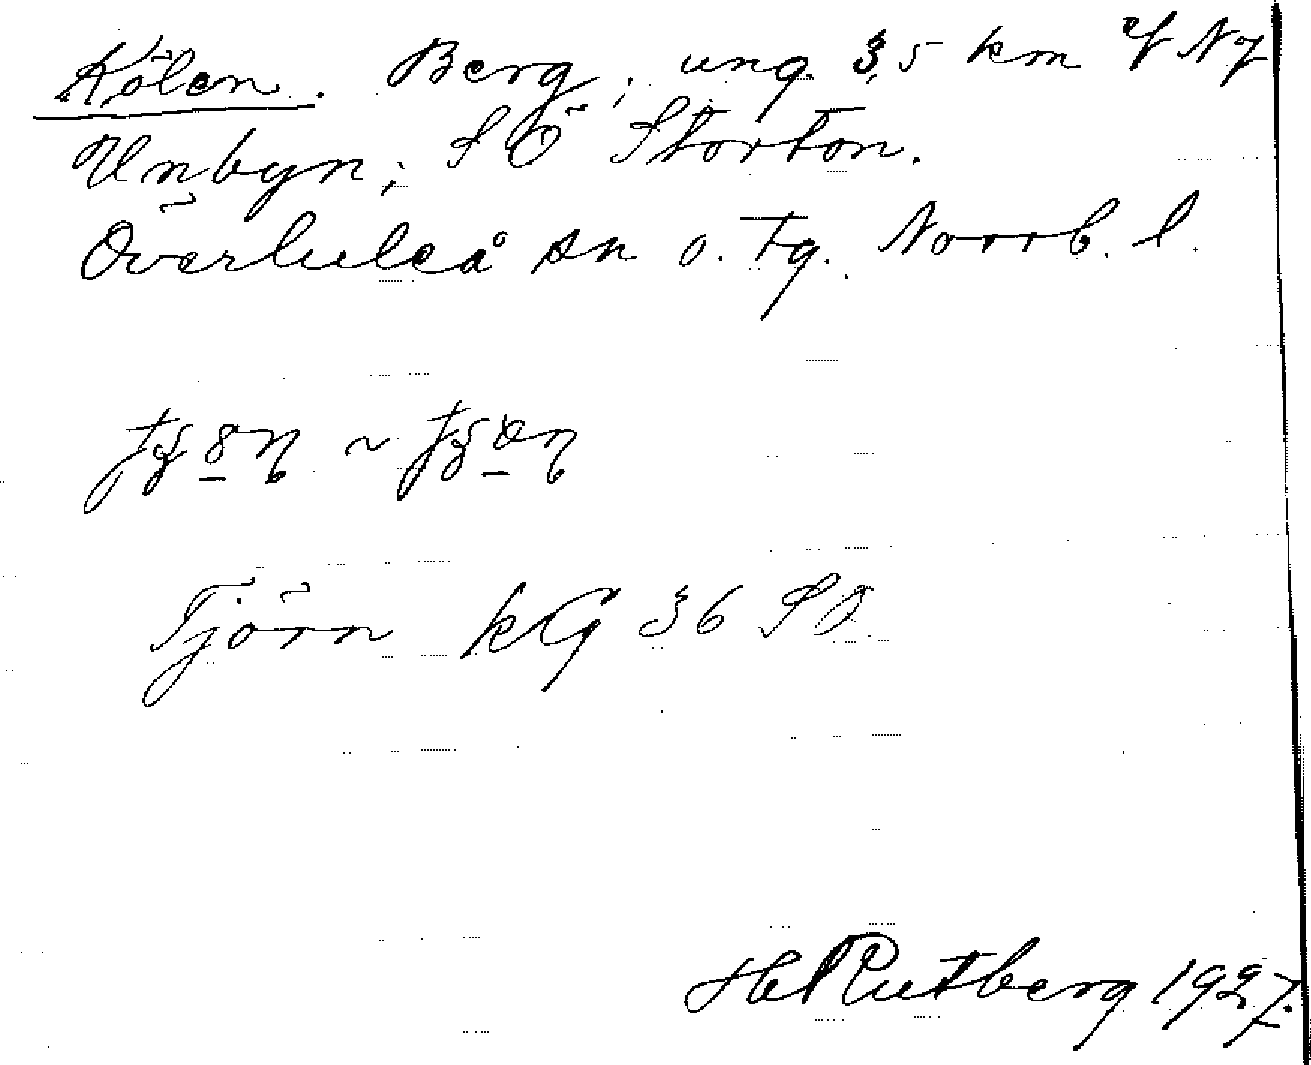 Kölen. Berg, ung. 3,5 km
Unbyn; SÖ Storton.
Överluleå sn o. Tg. Norrb. l.
~
Tjörn kG 36 SO
Hj Rutberg 1927.